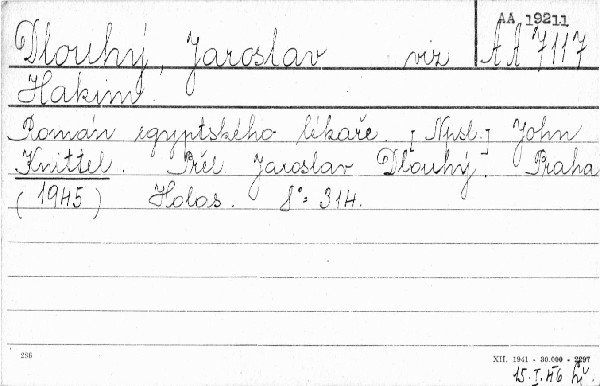 AA 19211
Dlouhý, Jaroslav viz AA 7117
Hakim.
Román egyptského lékaře. [Npsl.] John
Knittel. Přel. Jaroslav Dlouhý. Praha
(1945) Holas. 8°. 314.
236
XII. 1941 - 30.000 - 2297
15. I. 46